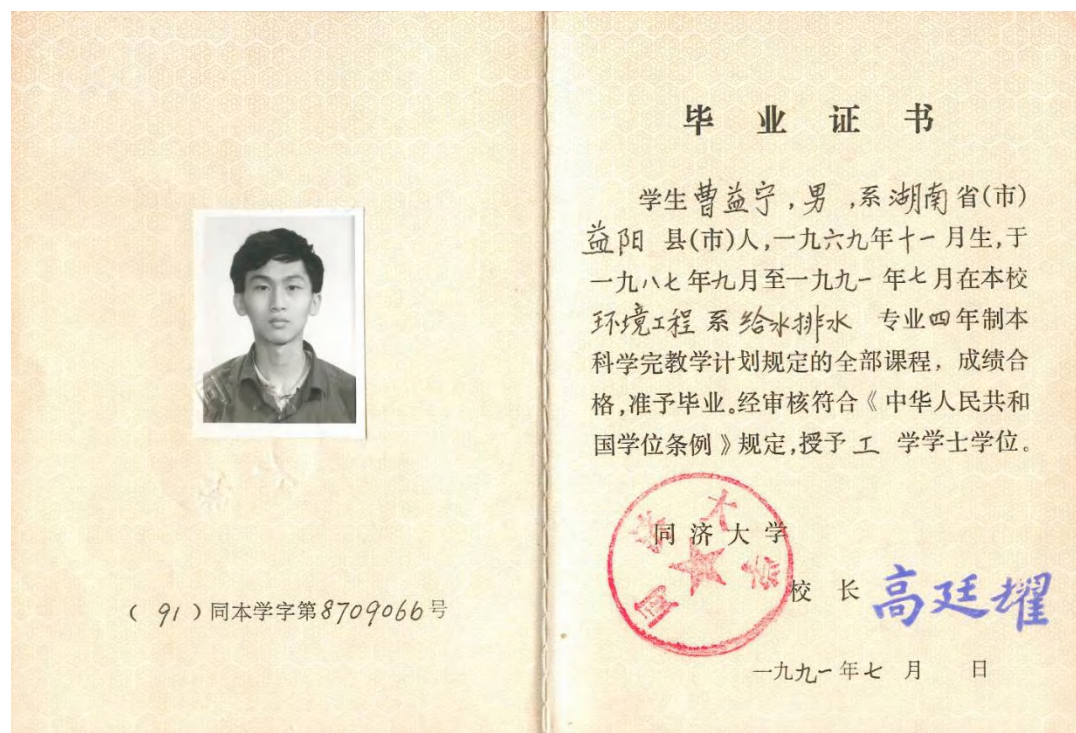 (91)同本学字第8709066号
毕业证书
学生曹益宁,男,系湖南省(市)
益阳县(市)人,一九六九年十一月生,于
一九八七年九月至一九九一年七月在本校
环境工程系给水排水 专业四年制本
科学完教学计划规定的全部课程，成绩合
格,准予毕业。经审核符合《中华人民共和
国学位条例》规定,授予工 学学士学位。
同济大学
同济大学
校 长 高廷耀
一九九一年七月 日